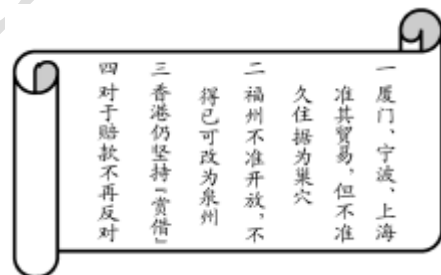 一 厦门、宁波、上海
准其贸易，但不准
久住据为巢穴
二 福州不准开放，不
得已可改为泉州
三 香港仍坚持“赏借”
四 对于赔款不再反对